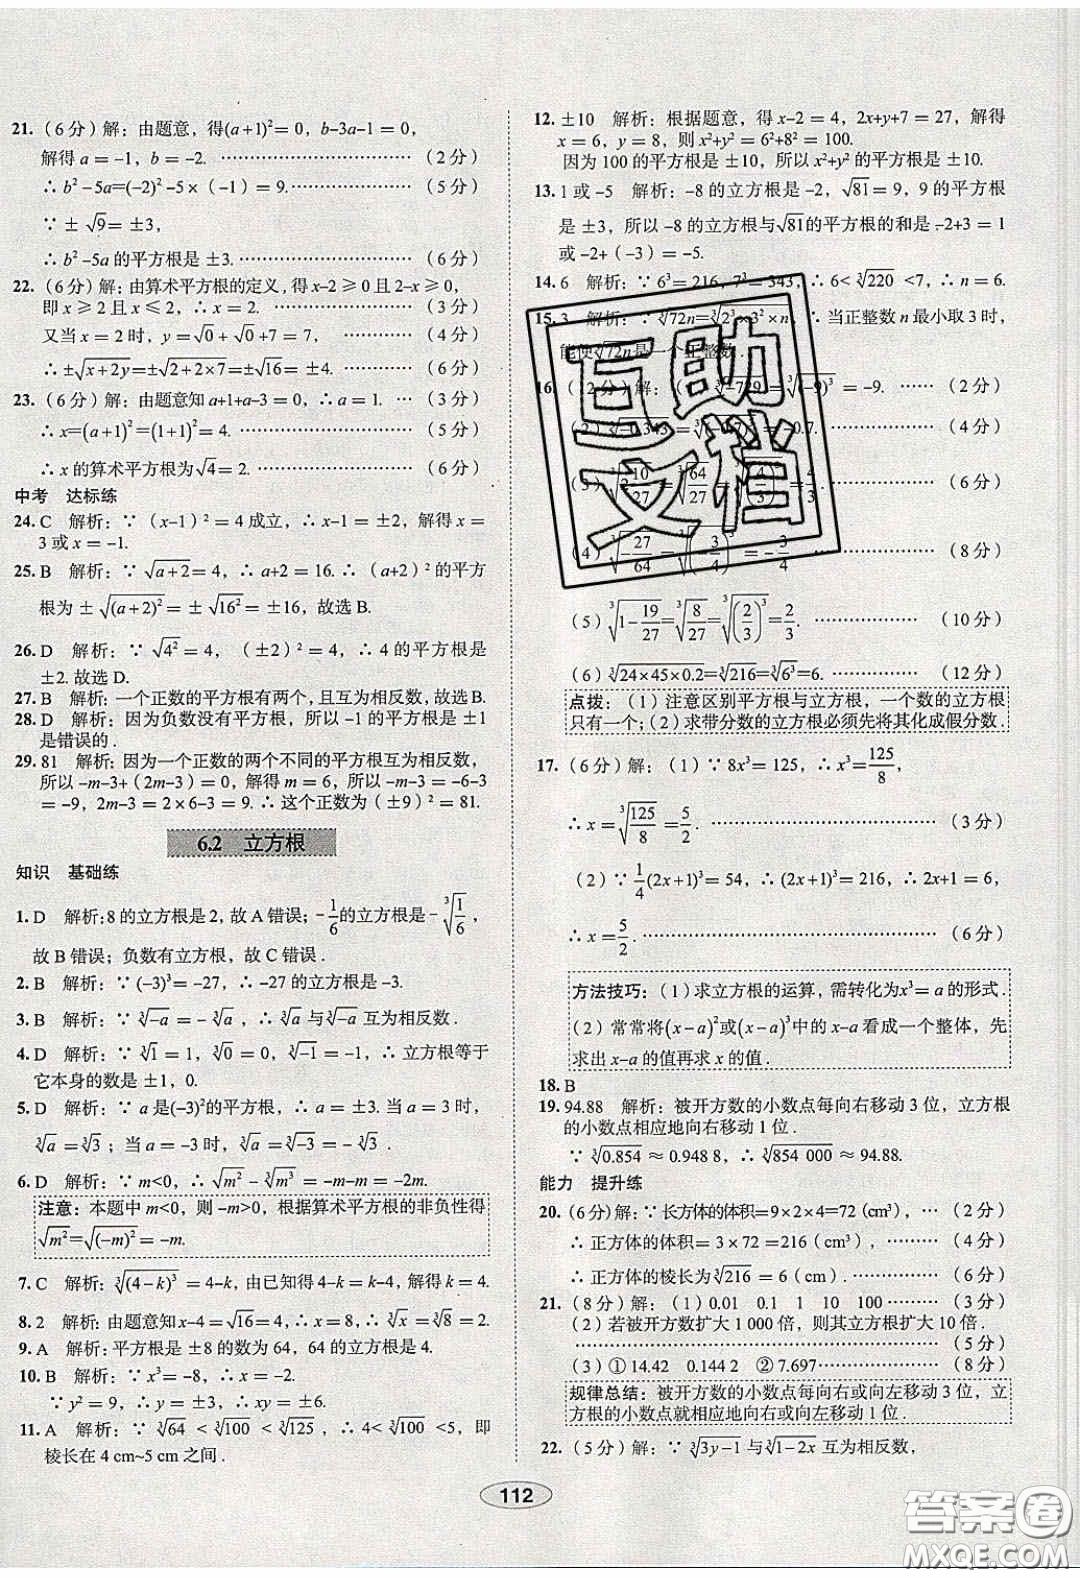 21.（6分）解：由题意，得(a+1)²= 0，b-3a-1 = 0，
解得 a = -1，b = -2. ……………………………（2分）
∴ b² -5a=(-2)² -5 ×（-1）= 9.…………………（5分）
∵ ± √9 = ±3，
∴ b² -5a 的平方根是 ±3. …………………………（6分）
22.（6分）解：由算术平方根的定义，得 x-2 ≥ 0 且 2-x ≥ 0，
即 x ≥ 2 且 x ≤ 2，∴ x = 2. ……………………（3分）
又当 x = 2 时，y = √0 + √0 +7 = 7，……………（4分）
∴ ±√(x+2y) = ±√(2+2×7) = ±√16 = ±4. …………（6分）
23.（6分）解：由题意知 a+1+a-3 = 0，∴ a = 1. …（3分）
∴ x=(a+1)²=(1+1)²= 4. ………………………（5分）
∴ x 的算术平方根为 √4 = 2. ……………………（6分）
中考　达标练
24. C　解析：∵（x-1）² = 4 成立，∴ x-1 = ±2，解得 x =
3 或 x = -1.
25. B　解析：∵ √(a+2) = 4，∴ a+2 = 16. ∴（a+2）² 的平方
根为 ± √((a+2)²) = ± √(16²) = ±16，故选 B.
26. D　解析：∵ √(4²) = 4，（±2）² = 4，∴ 4 的平方根是
±2. 故选 D.
27. B　解析：一个正数的平方根有两个，且互为相反数，故选 B.
28. D　解析：因为负数没有平方根，所以 -1 的平方根是 ±1
是错误的.
29. 81　解析：因为一个正数的两个不同的平方根互为相反数，
所以 -m-3+(2m-3) = 0，解得 m = 6，所以 -m-3 = -6-3
= -9，2m-3 = 2×6-3 = 9. ∴ 这个正数为（±9）² = 81.
6.2　立方根
知识　基础练
1. D　解析：8 的立方根是 2，故 A 错误；-1/6 的立方根是 -∛(1/6)，
故 B 错误；负数有立方根，故 C 错误.
2. B　解析：∵ (-3)³= -27，∴ -27 的立方根是 -3.
3. B　解析：∵ ∛(-a) = -∛a，∴ ∛a 与 ∛(-a) 互为相反数.
4. D　解析：∵ ∛1 = 1，∛0 = 0，∛(-1) = -1，∴ 立方根等于
它本身的数是 ±1，0.
5. D　解析：∵ a 是(-3)²的平方根，∴ a = ±3. 当 a = 3 时，
∛a = ∛3；当 a = -3 时，∛a = ∛(-3) = -∛3.
6. D　解析：∵ m<0，∴ √(m²) - ∛(m³) = -m-m = -2m.
注意：本题中 m<0，则 -m>0，根据算术平方根的非负性得
√(m²)=√((-m)²)= -m.
7. C　解析：∛((4-k)³) = 4-k，由已知得 4-k = k-4，解得 k = 4.
8. 2　解析：由题意知x-4 = √16 = 4，∴ x = 8，∴ ∛x = ∛8 = 2.
9. A　解析：平方根是 ±8 的数为 64，64 的立方根是 4.
10. B　解析：∵ x³= -8，∴ x = -2.
∵ y² = 9，∴ y = ±3，∴ xy = ±6.
11. A　解析：∵ ∛64 < ∛100 < ∛125，∴ 4 < ∛100 <5，即
棱长在 4 cm~5 cm 之间.
12. ±10　解析：根据题意，得 x-2 = 4，2x+y+7 = 27，解得
x = 6，y = 8，则 x²+y² = 6²+8² = 100.
因为 100 的平方根是 ±10，所以 x²+y² 的平方根是 ±10.
13. 1 或 -5　解析：-8 的立方根是 -2，√81 = 9，9 的平方根
是 ±3，所以 -8 的立方根与 √81 的平方根的和是 -2+3 = 1
或 -2+(-3) = -5.
14. 6　解析：∵ 6³ = 216，7³ = 343，∴ 6< ∛220 <7，∴ n = 6.
15. 3　解析：∵ ∛(72n) = ∛(2³×3²×n)，∴ 当正整数 n 最小取 3 时，
能使 ∛(72n) 是一个正整数.
16.（12分）解：（1）∛(-729) = ∛((-9)³) = -9. ……（2分）
（2）∛(-0.343) = ∛((-0.7)³) = -0.7. ……（4分）
（3）∛(2 10/27) = ∛(64/27) = ∛((4/3)³) = 4/3 ……（6分）
（4）∛(-27/64) = ∛((-3/4)³) = -3/4 ……（8分）
（5）∛(1-19/27) = ∛(8/27) = ∛((2/3)³) = 2/3. ………………（10分）
（6）∛(24×45×0.2) = ∛216 = ∛(6³) = 6. …………（12分）
点拨：（1）注意区别平方根与立方根，一个数的立方根
只有一个；（2）求带分数的立方根必须先将其化成假分数.
17.（6分）解：（1）∵ 8x³= 125，∴ x³= 125/8，
∴ x = ∛(125/8) = 5/2. ………………………（3分）
（2）∵ 1/4 (2x+1)³= 54，∴ (2x+1)³= 216，∴ 2x+1 = 6，
∴ x = 5/2. ……………………………（6分）
方法技巧：（1）求立方根的运算，需转化为x³= a 的形式.
（2）常常将(x-a)²或(x-a)³中的 x-a 看成一个整体，先
求出 x-a 的值再求 x 的值.
18. B
19. 94.88　解析：被开方数的小数点每向右移动 3 位，立方根
的小数点相应地向右移动 1 位.
∵ ∛0.854 ≈ 0.948 8，∴ ∛854 000 ≈ 94.88.
能力　提升练
20.（6分）解：∵ 长方体的体积= 9×2×4=72 (cm³)，…（2分）
∴ 正方体的体积 = 3 × 72 = 216 (cm³)，………（4分）
∴ 正方体的棱长为 ∛216 = 6（cm）.……………（6分）
21.（8分）解：（1）0.01　0.1　1　10　100………（3分）
（2）若被开方数扩大 1 000 倍，则其立方根扩大 10 倍.
………………………………………（5分）
（3）① 14.42　0.144 2　② 7.697……………（8分）
规律总结：被开方数的小数点每向右或向左移动 3 位，立
方根的小数点就相应地向右或向左移动 1 位.
22.（5分）解：∵ ∛(3y-1) 与 ∛(1-2x) 互为相反数，
112
互助
文档
答案圈
MXQE.COM